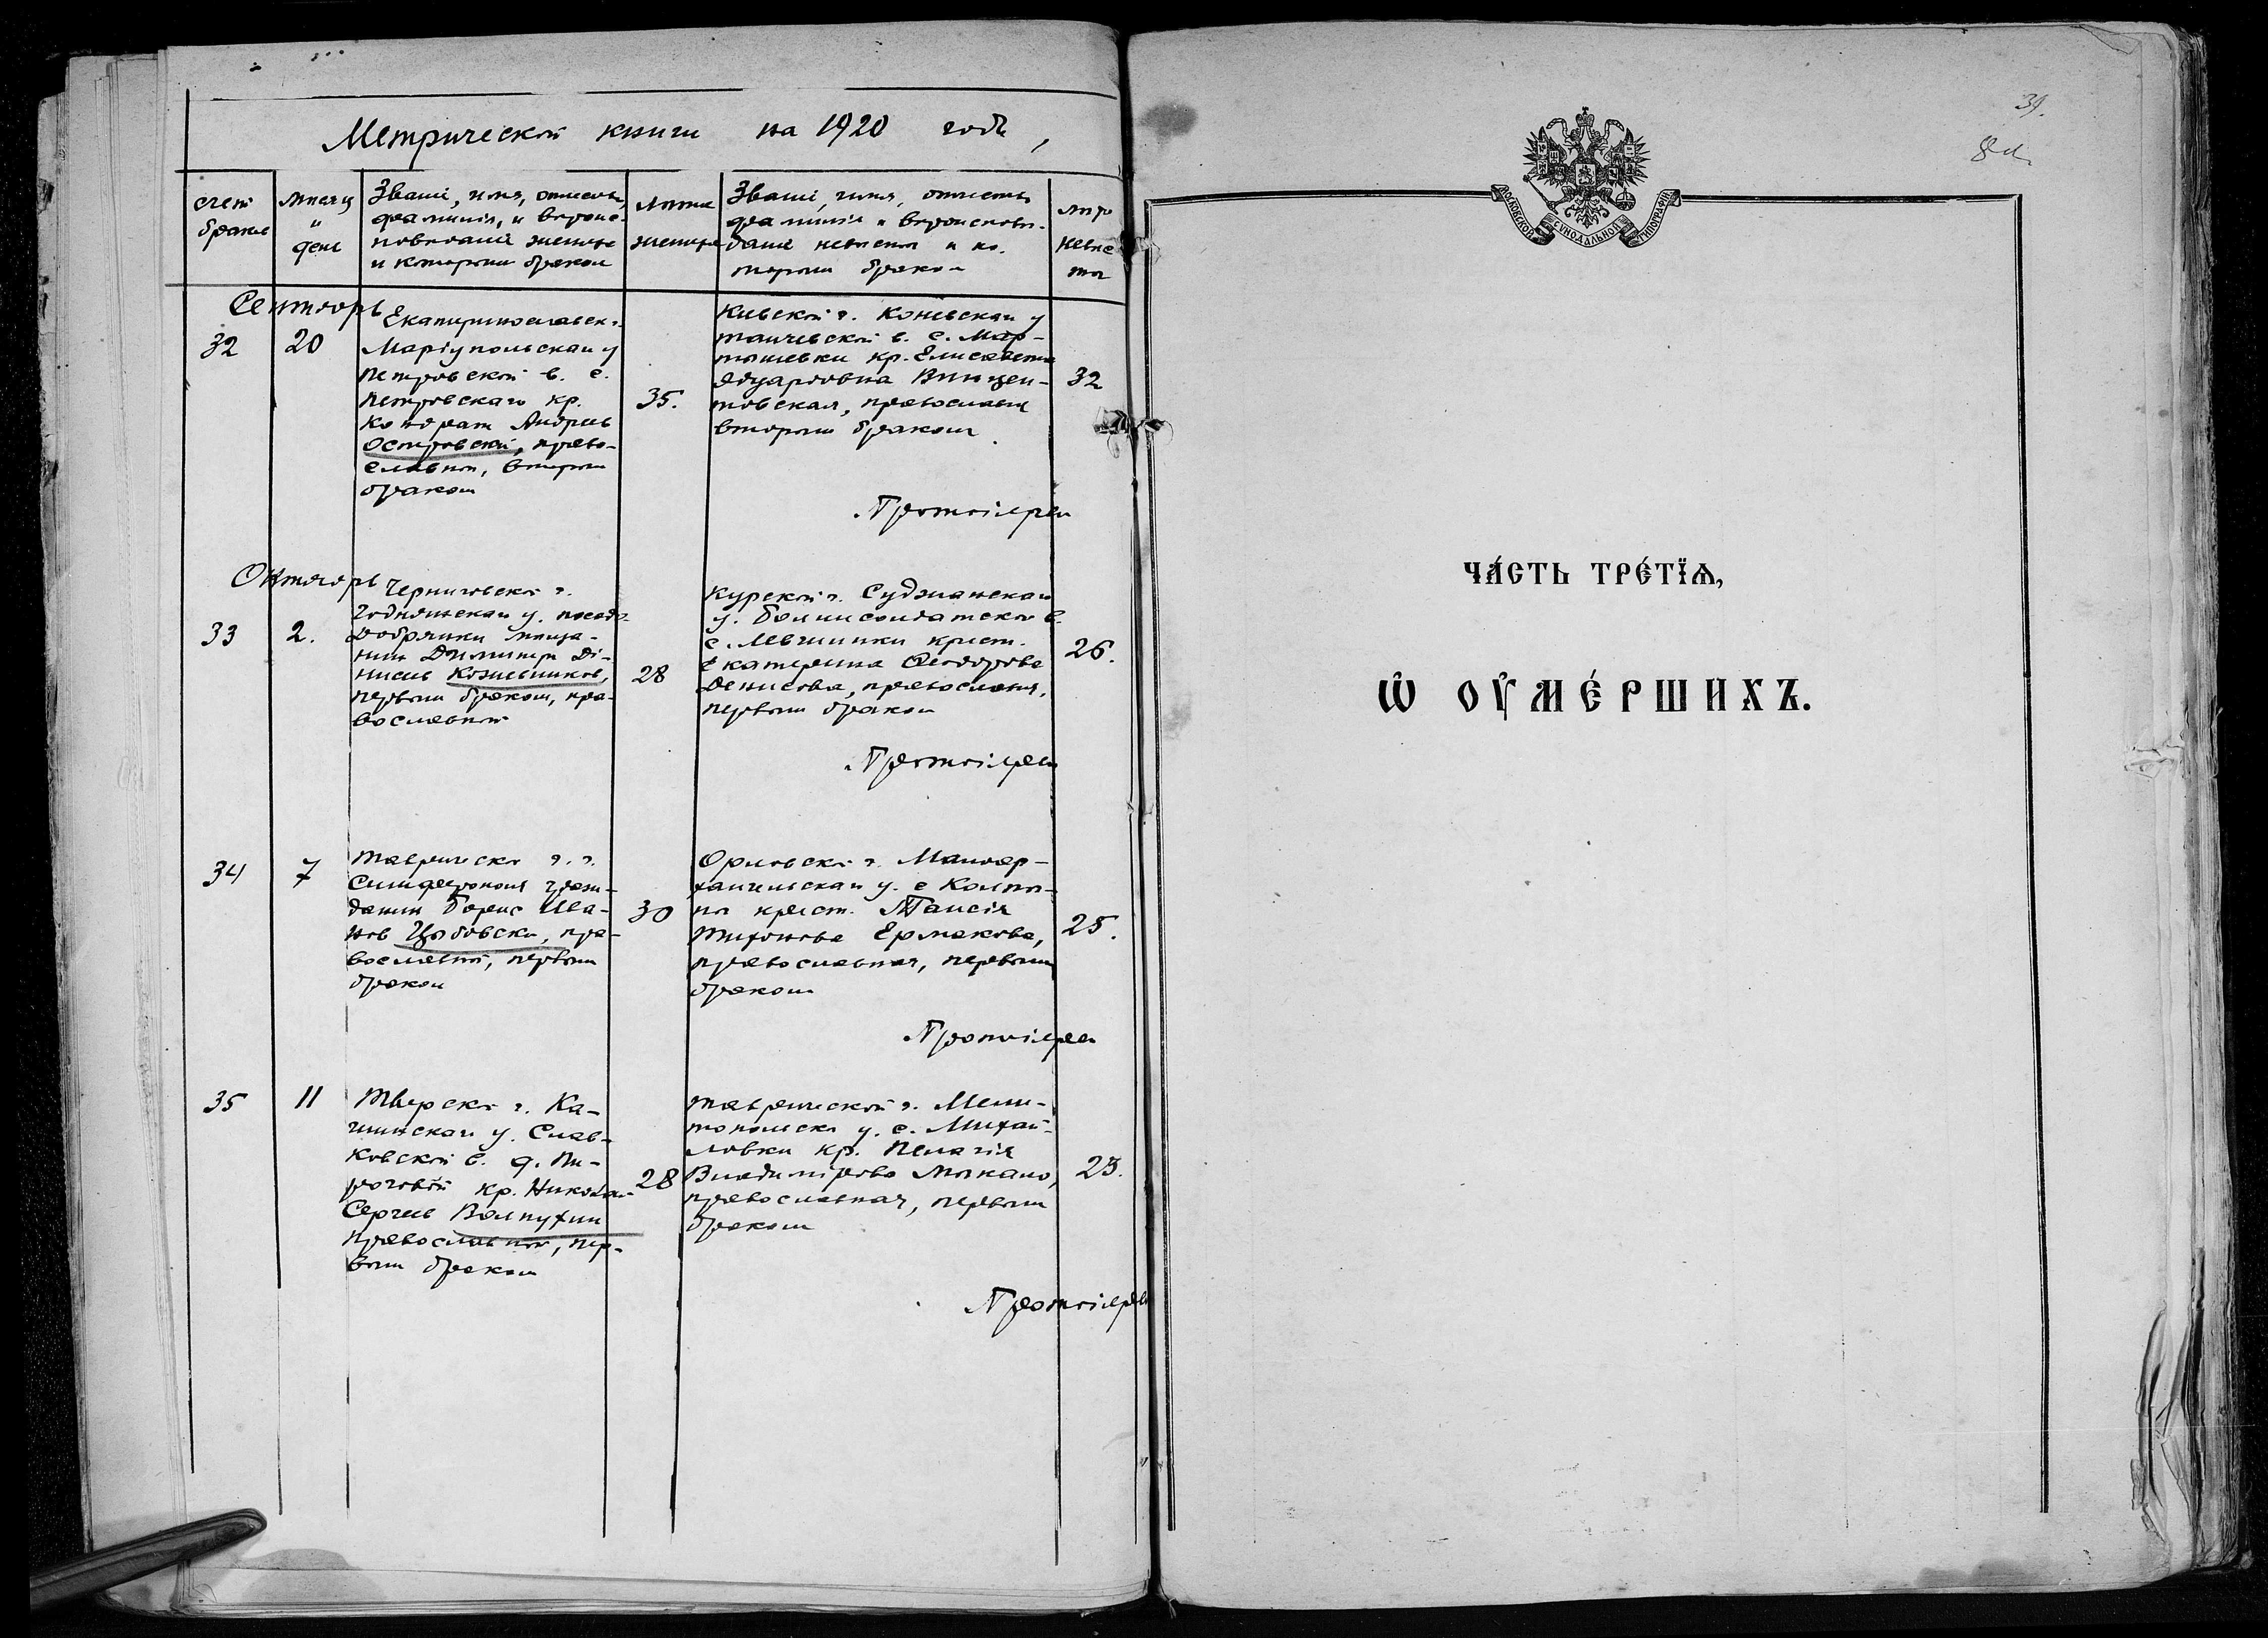 Метрической книги на 1920 годъ,
счет брака
месяц и день
Званіе, имя, отчество,
фамилія, и вероис-
поведаніе жениха
и которым браком
Летие жениха
Званіе, имя, отчество
фамилія и вероисповѣ-
даніе невесты и ко-
торым браком
лет невесты
Сентябрь
32
20
Екатеринославск. г.
Маріупольскаго у
Петровской в. с.
Петровскаго кр.
Кондрат Андреев
Островскій, право-
славный, вторым
браком
35.
Кіевской г. Каневскаго у
таичевской в. с. Мар-
тышевки кр. Елисавета
Эдуардовна Винцен-
товская, православн
вторым браком
32
Протоіерей
Октябрь
33
2.
Черниговской г.
Городнянскаго у. посада
Добрянки меща-
нин Димитрий Ді-
нисьев Кожевников,
первым браком, пра-
вославный
28
Курской г. Суджанскаго
у. Большесолдатской в.
с. Левшинки крест.
Екатерина Феодорова
Денисова, православн.
первым браком
26.
Протоіерей
34
7
Таврическо г. г.
Симферополя граж-
данин Борис Ива-
нов Цыбовски, пра-
вославный, первым
браком
30
Орловско г. Малоар-
хангельскаго у. с Колпы-
ны крест. Таисія
Тихонова Ермакова,
православная, первым
браком
25.
Протоіерей
35
11
Тверско г. Ка-
шинскаго у. Слав-
ковской в. д. Пи-
роговой кр. Николай
Сергеев Валпухин
православный, пер-
вым браком
28
Таврической г. Мели-
топольск у. с. Михай-
ловки кр. Пелагія
Владимірова Мокано,
православная, первым
браком
23.
Протоіерей
39.
МОСКОВСКОЙ СѴНОДАЛЬНОЙ ТИПОГРАФІИ
ЧА́СТЬ ТРЕ́ТЇѦ,
Ѡ ОУ҆МЕ́РШИХЪ.